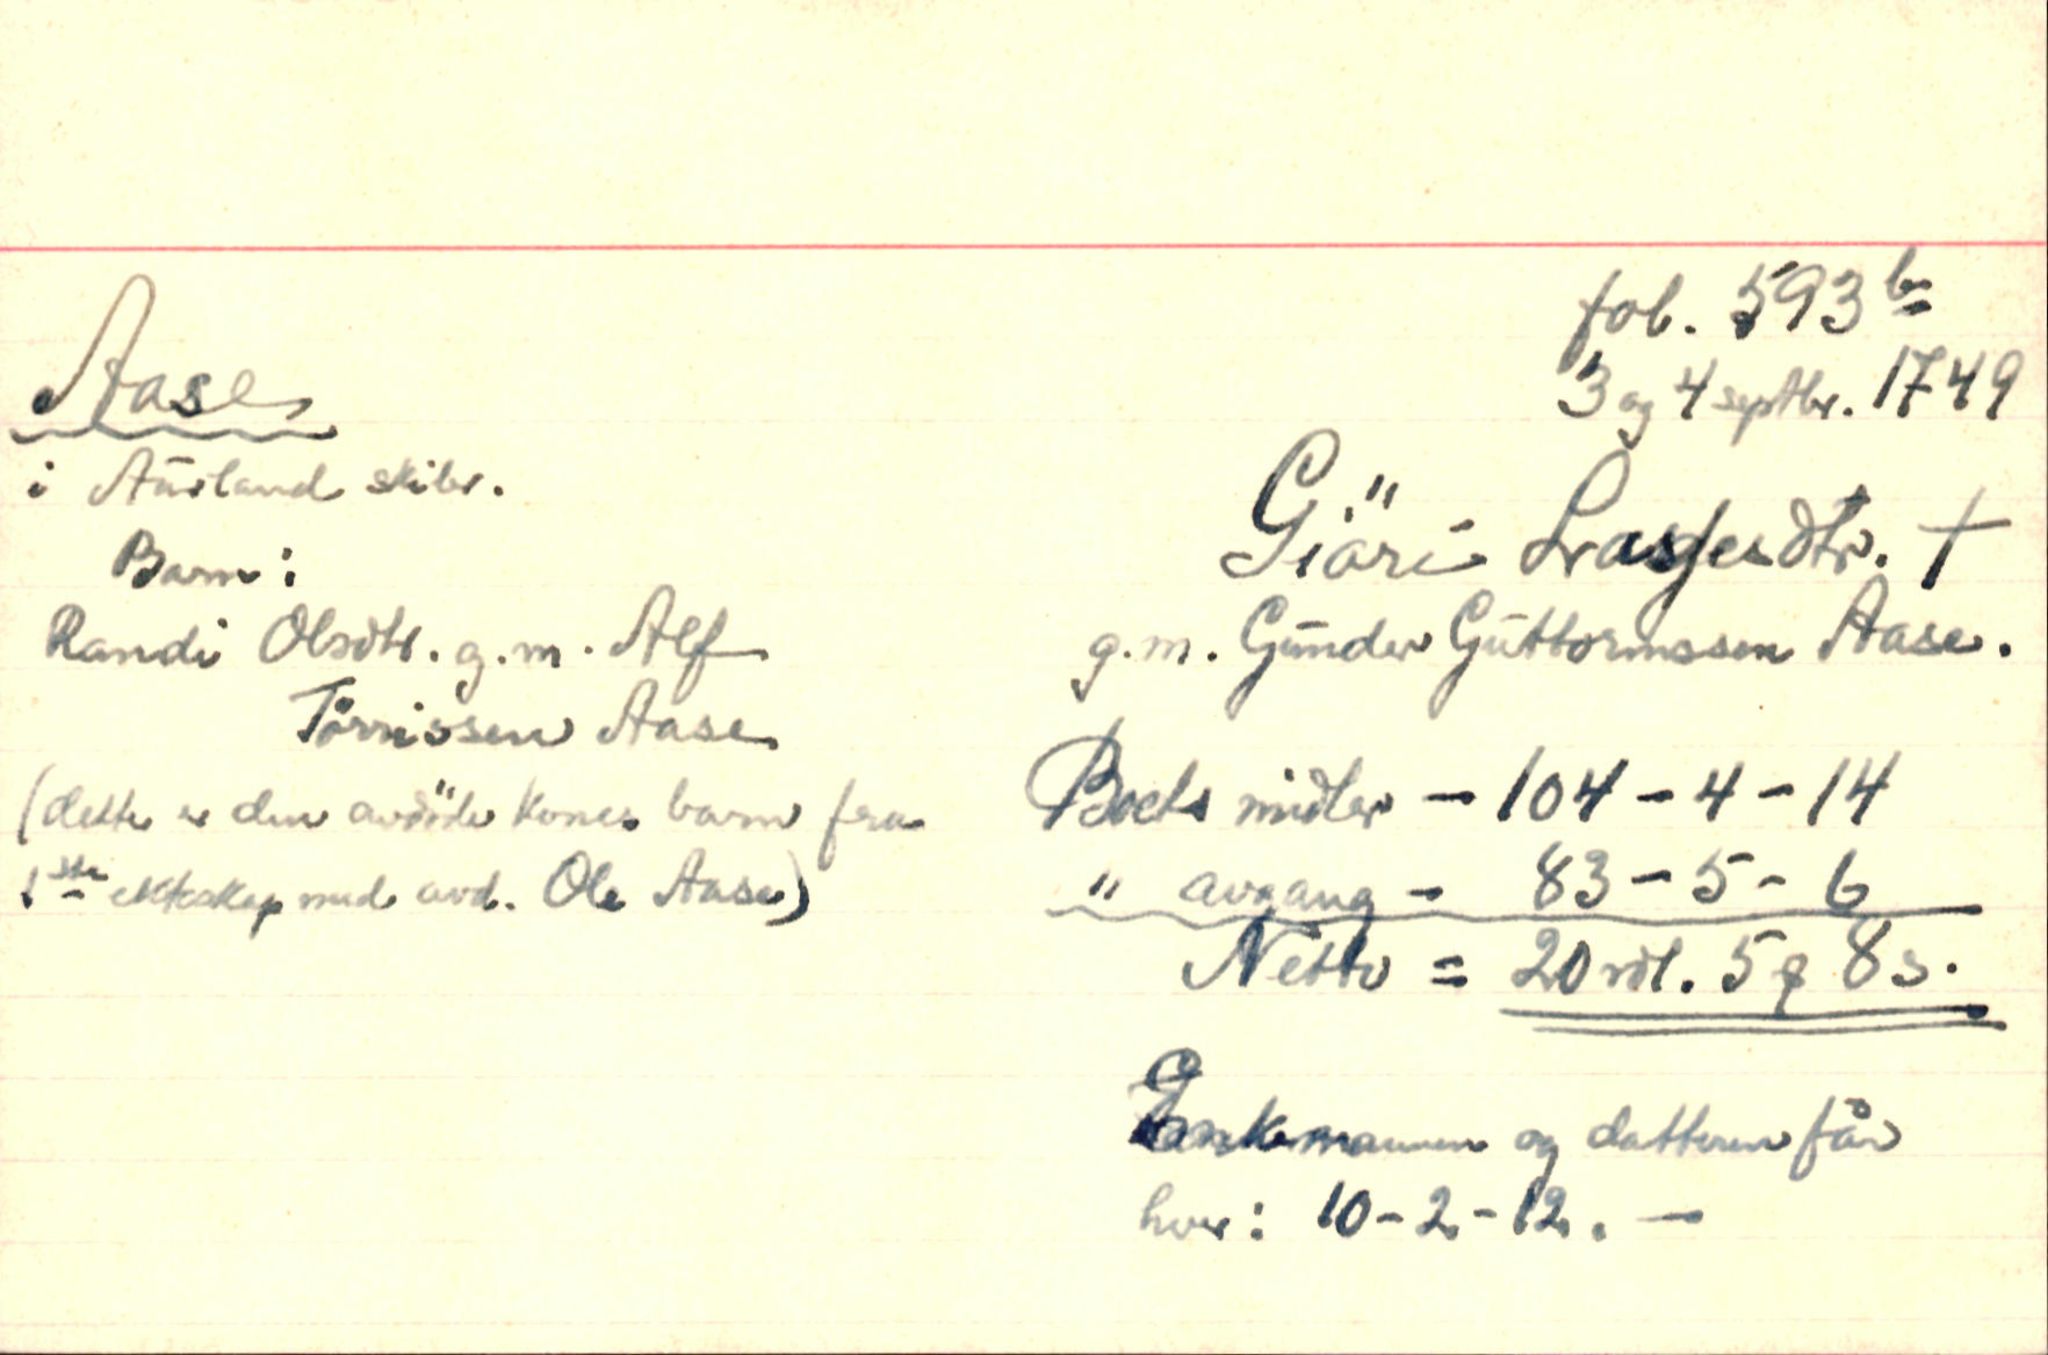 Aase
i Aurland skibr.
Barn:
Randi Olsdtr. g.m. Alf
Tørrissen Aase
(dette er den avdöde kones barn fra
1ste ekteskap med avd. Ole Aase)
fol. 593b
3 og 4 septbr. 1749
Giöri Lassesdtr. †
g.m. Gunder Guttormssen Aase.
Boets midler - 104 - 4 - 14
" avgang - 83 - 5 - 6
Netto = 20 rdl. 5 q 8 s.
Enkemannen og datteren får
hver: 10 - 2 - 12. -